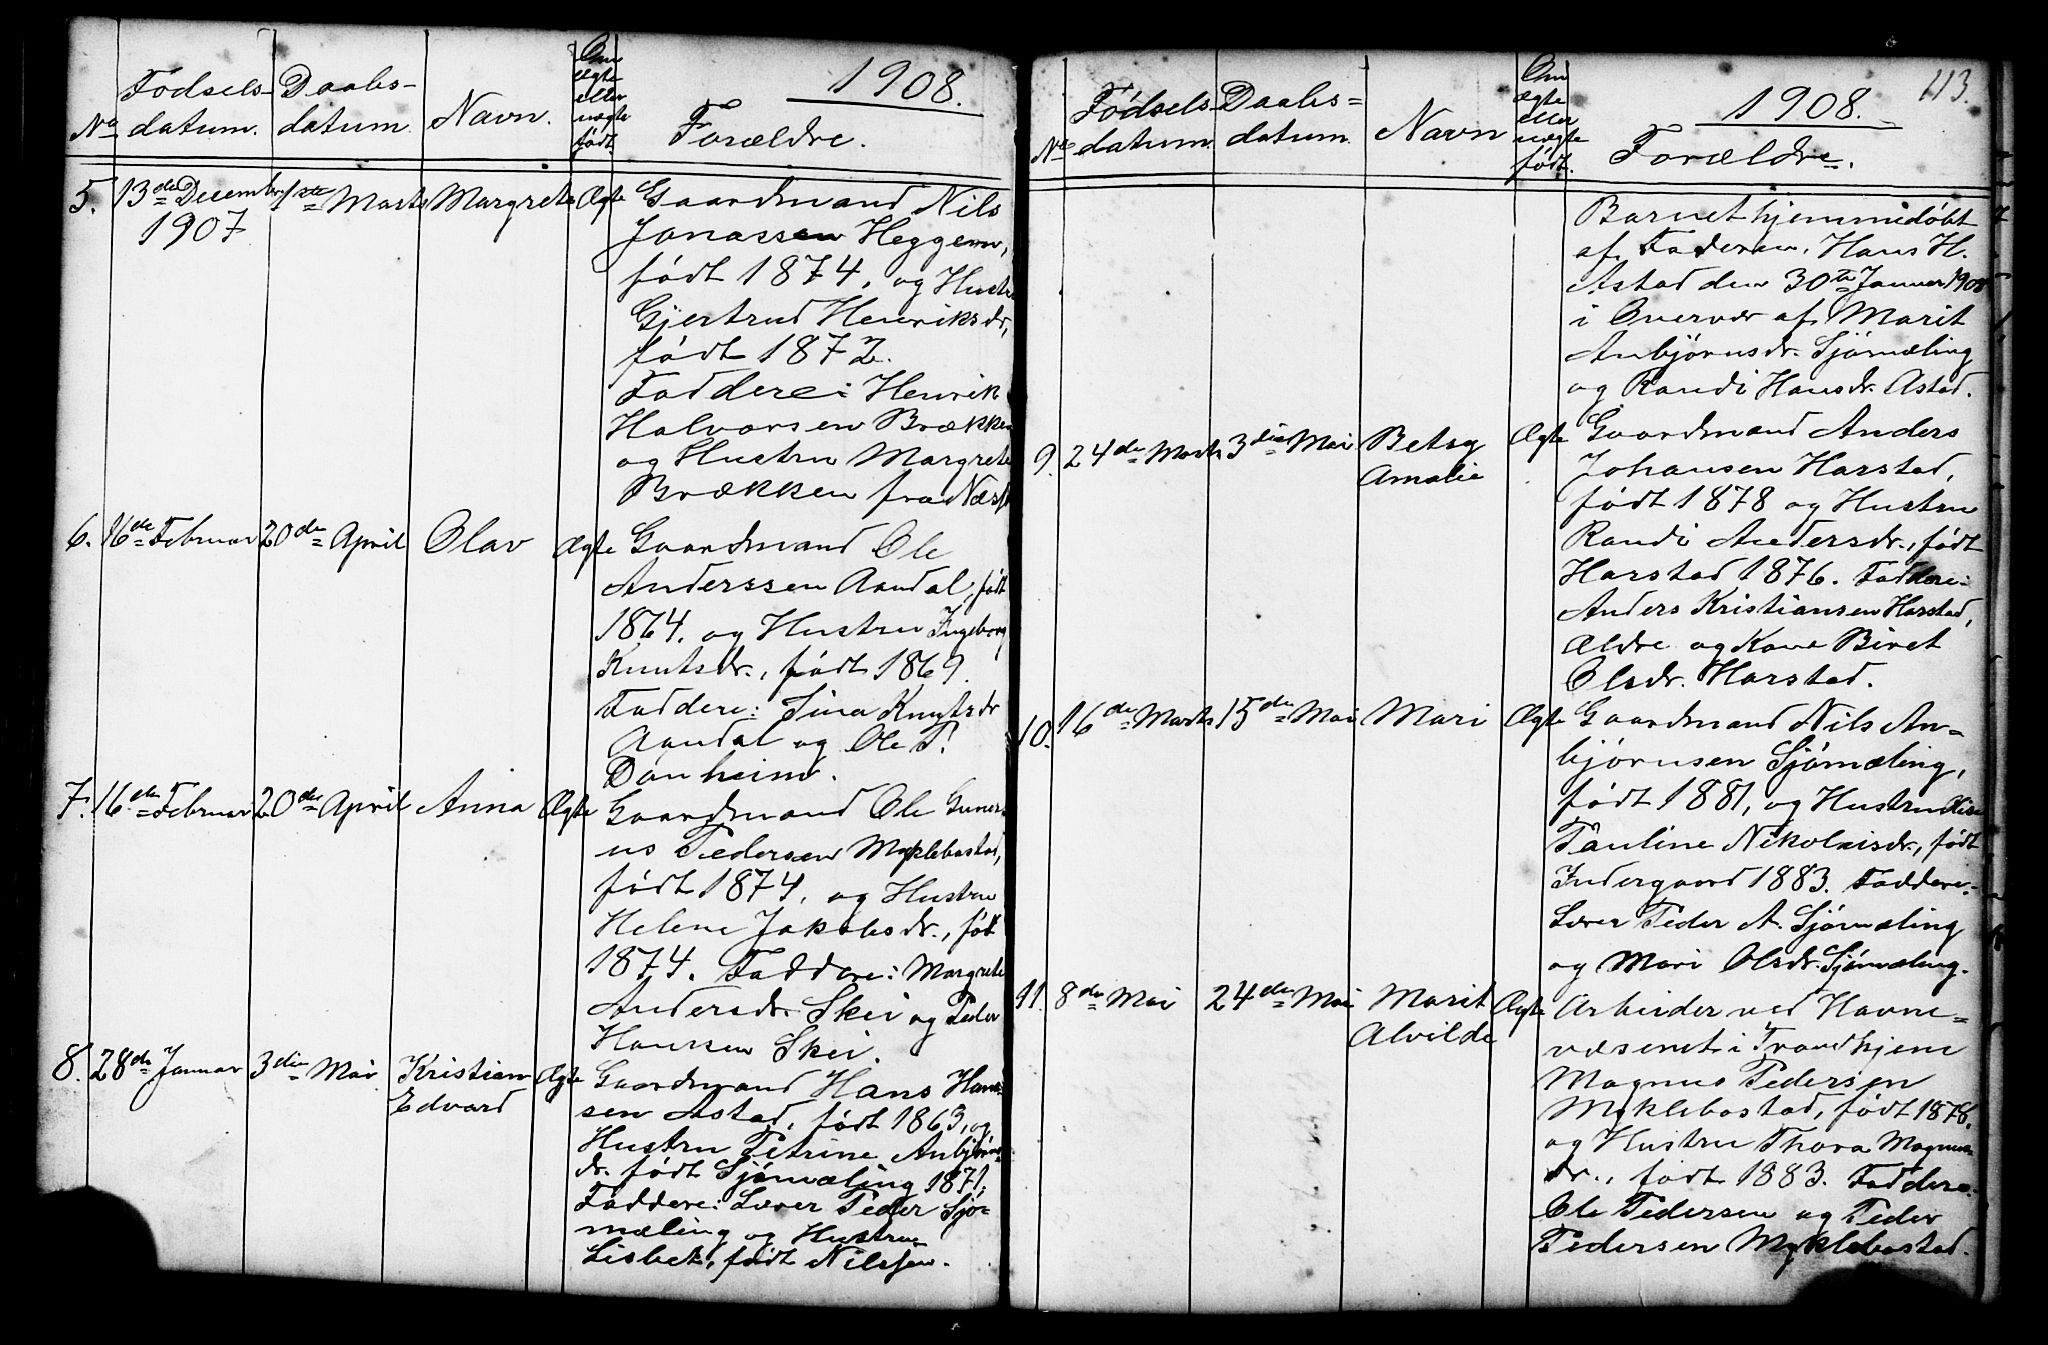 1908.
No
Fødsels-
datum.
Daabs-
datum.
Navn.
Om
ægte
eller
uægte
født.
Forældre.
5. 13de Decembr 1ste Marts Margrete Ægte Gaardmand Nils
1907
Jonassen Heggem,
født 1874, og Hustru
Gjertrud Henriksdr,
født 1872.
Faddere: Henrik
Halvorsen Brækken
og Hustru Margrete
Brækken fra
6. 16de Februar 20de April Olav Ægte Gaardmand Ole
Anderssen Aandal, født
1864, og Hustru Ingeborg
Knutsdr., født 1869.
Faddere: Sina Knutsdr
Aandal og Ole P.
Dønheim.
7. 16de Februar 20de April Anna Ægte Gaardmand Ole Guner-
us Pedersen Myklebostad,
født 1874, og Hustru
Helene Jakobsdr., født
1874. Faddere: Margrete
Andersdr. Skei og Peder
Hanssen Skei.
8. 28de Januar 3die Mai Kristian Ægte Gaardmand Hans Han-
Edvard
sen Astad, født 1863, og
Hustru Petrine Anbjørns-
dr. født Sjømæling 1871.
Faddere: Lærer Peder Sjø-
mæling og Hustru
Lisbet, født Nilssen.
113.
1908.
No
Fødsels-
datum.
Daabs-
datum.
Navn
Om
ægte
eller
uægte
født.
Forældre.
Barnet hjemmedøbt
af Faderen, Hans H.
Astad den 30te Januar 1908
i Overvær af Marit
Anbjørnsdr. Sjømæling
og Randi Hansdr. Astad.
9. 24de Marts 3die Mai Betsy Ægte Gaardmand Anders
Amalie
Johansen Harstad,
født 1878 og Hustru
Randi Andersdr., født
Harstad 1876. Faddere:
Anders Kristiansen Harstad,
Ældre og Kone Beret
Olsdr. Harstad.
10. 16de Marts 15de Mai Mari Ægte Gaardmand Nils An-
bjørnsen Sjømæling,
født 1881, og Hustru Elise
Pauline Nikolaisdr., født
Indergaard 1883. Faddere:
Lærer Peder A. Sjømæling
og Mari Olsdr. Sjømæling.
11. 8de Mai 24de Mai Marit Ægte Arbeider ved Havne-
Alvilde
væsenet i Trondhjem
Magnus Pedersen
Myklebostad, født 1878.
og Hustru Thora Magnus-
dr., født 1883. Faddere:
Ole Pedersen og Peder
Pedersen Myklebostad.